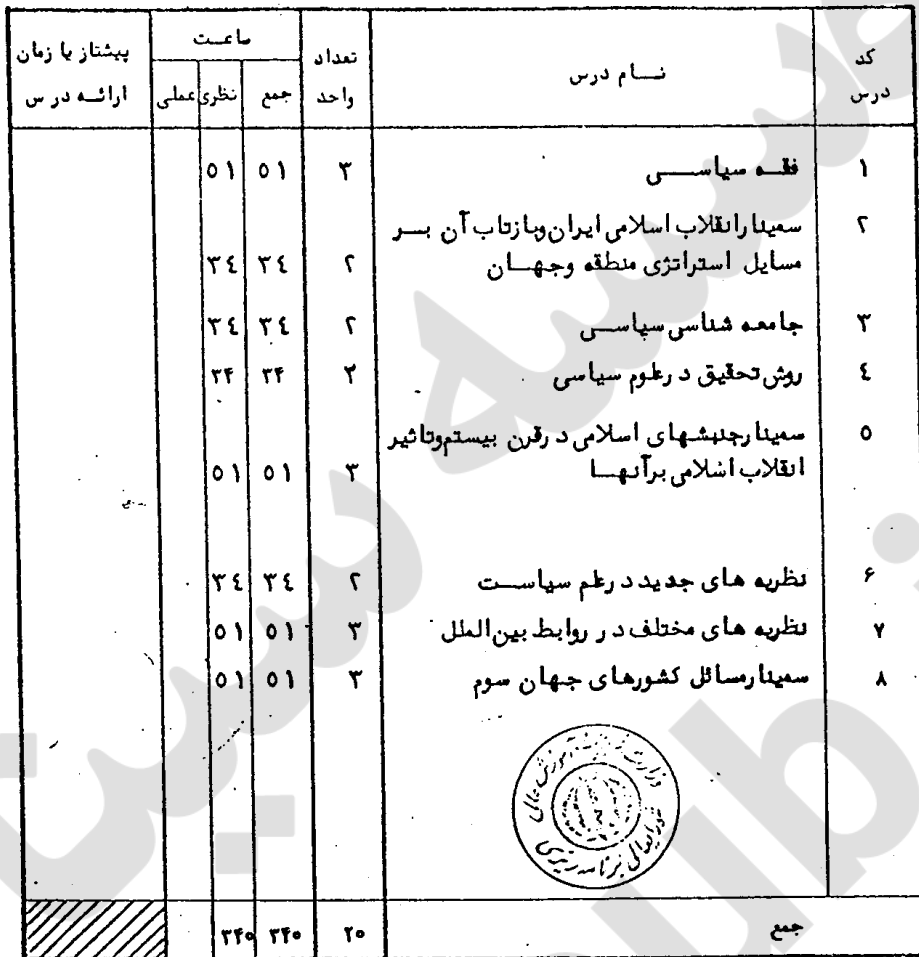 کد درس | نام درس | تعداد واحد | ساعت: جمع | نظری | عملی | پیشنیاز یا زمان ارائه درس
۱ | فقه سیاسی | ۳ | ۵۱ | ۵۱
۲ | سمینار انقلاب اسلامی ایران و بازتاب آن بر
مسایل استراتژی منطقه و جهان | ۲ | ۳٤ | ۳٤
۳ | جامعه شناسی سیاسی | ۲ | ۳٤ | ۳٤
٤ | روش تحقیق در علوم سیاسی | ۲ | ۳۴ | ۳۴
۵ | سمینار جنبشهای اسلامی در قرن بیستم و تاثیر
انقلاب اسلامی بر آنها | ۳ | ۵۱ | ۵۱
۶ | نظریه های جدید در علم سیاست | ۲ | ۳٤ | ۳٤
۷ | نظریه های مختلف در روابط بین الملل | ۳ | ۵۱ | ۵۱
۸ | سمینار مسائل کشورهای جهان سوم | ۳ | ۵۱ | ۵۱
آموزش عالی
برنامه ریزی
جمع | ۲۰ | ۳۴۰ | ۳۴۰